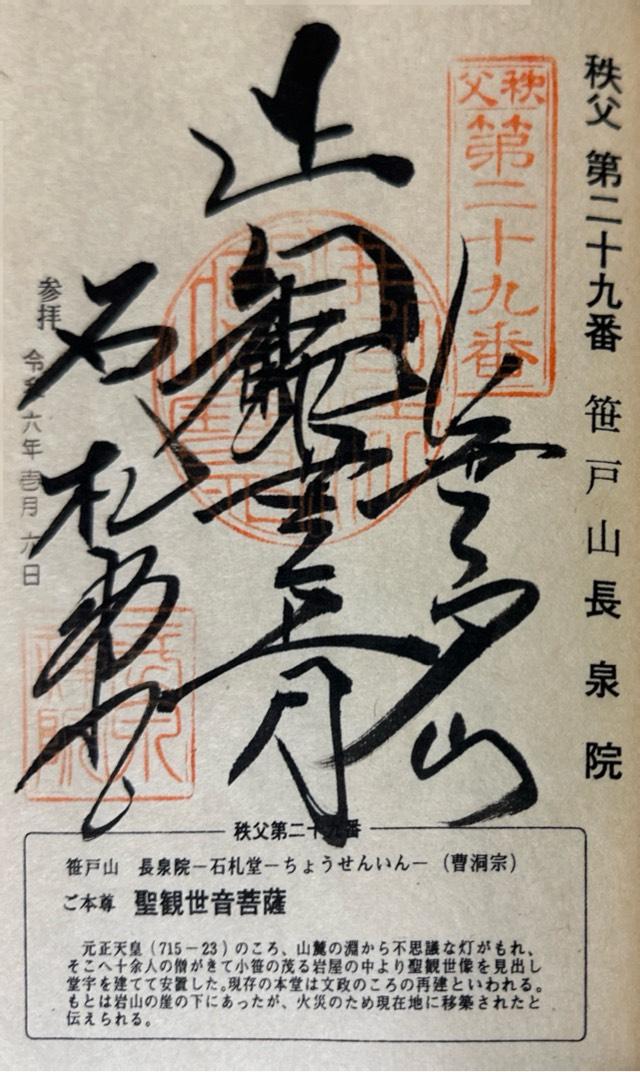 秩父 第二十九番 笹戸山長泉院
秩父
第二十九番
山
石札堂
参拝 令和六年壱月六日
秩父第二十九番
笹戸山 長泉院－石札堂－ちょうせんいん－（曹洞宗）
ご本尊 聖観世音菩薩
元正天皇（715－23）のころ、山麓の淵から不思議な灯がもれ、
そこへ十余人の僧がきて小笹の茂る岩屋の中より聖観世像を見出し
堂宇を建てて安置した。現存の本堂は文政のころの再建といわれる。
もとは岩山の崖の下にあったが、火災のため現在地に移築されたと
伝えられる。